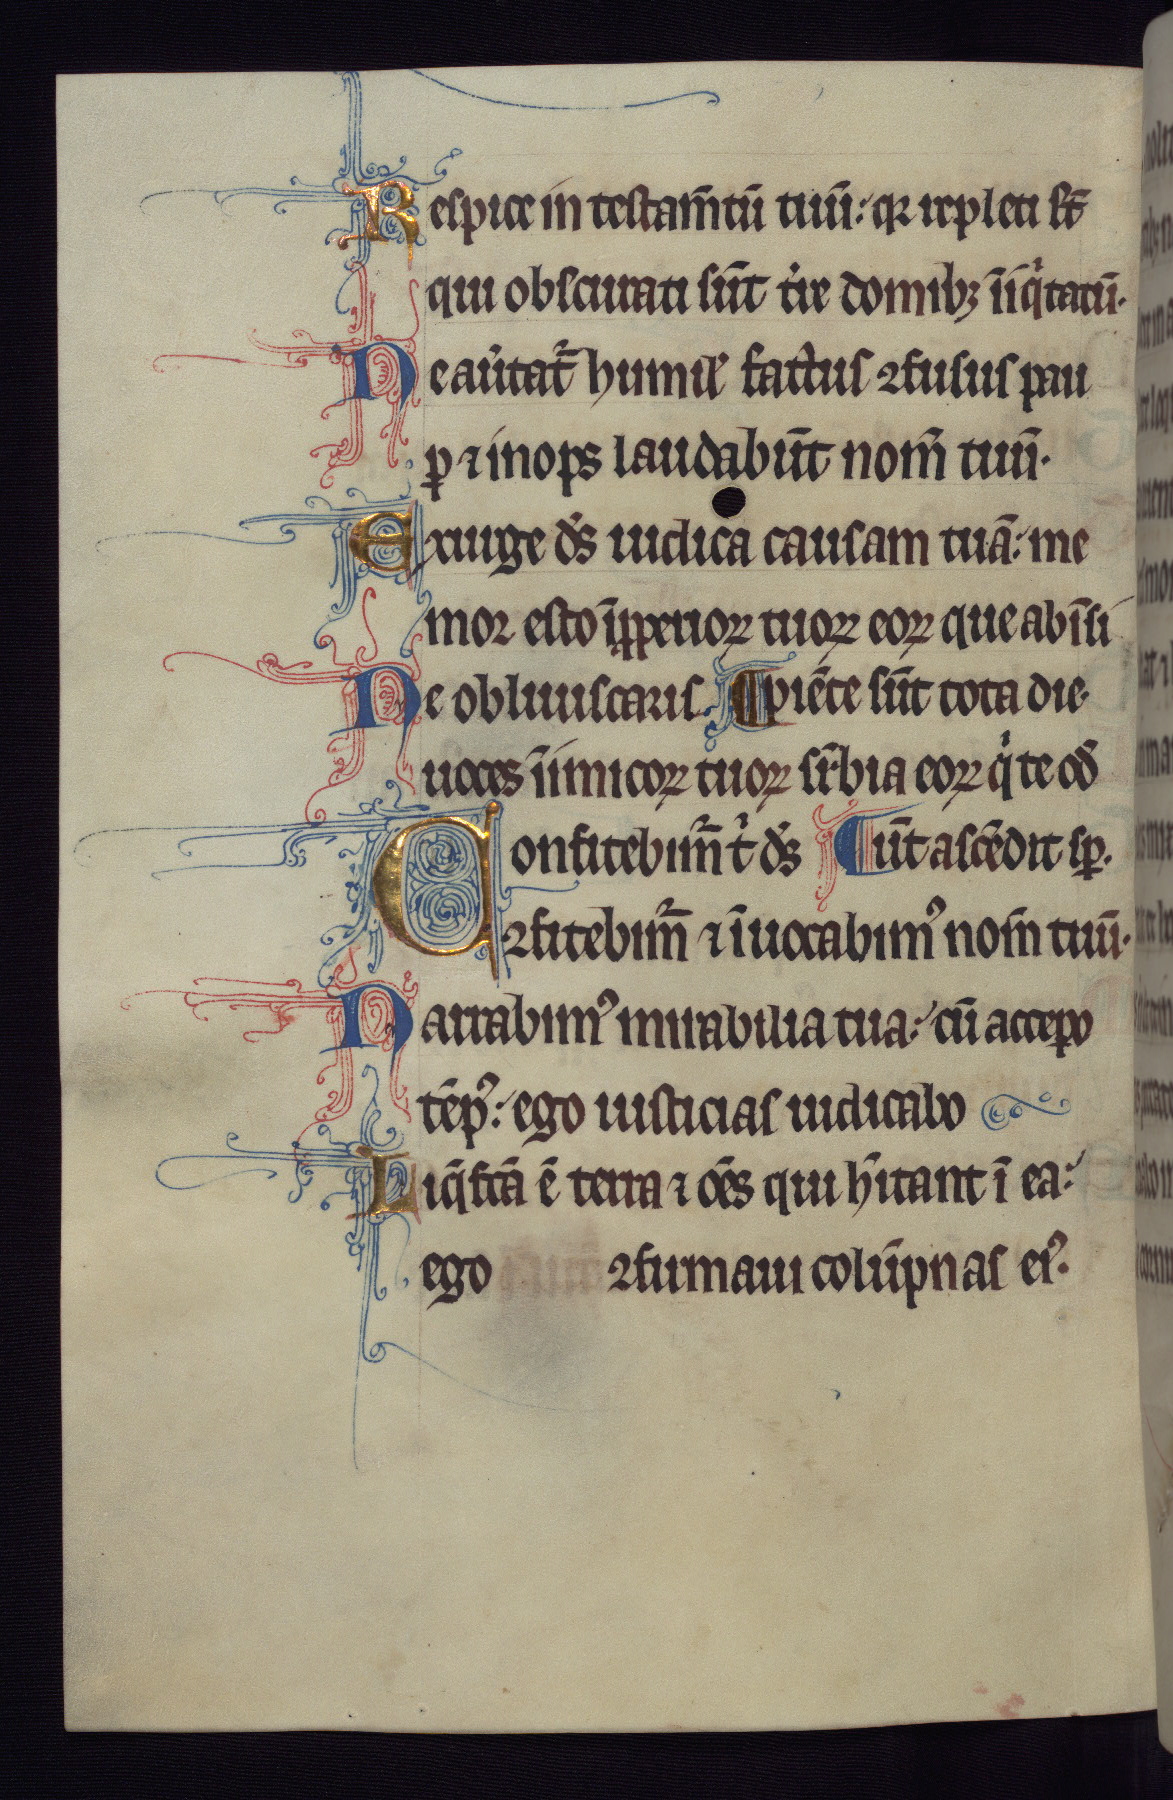 Respice in testam̄tū tuū: qꝛ repleti st̄
qui obscurati sūt t̓re domibꝫ īiqͥtatū.
Ne au̓tat᷑ humil̓ fact̓us ꝯfusus pau
ꝑ ⁊ inops laudabūt nom̄ tuū.
Exurge ds̄ iudica causam tuā: me
mor esto īꝓperioꝝ tuoꝝ eoꝝ que ab īsi
Ne obliuiscaris ¶piēte sūt tota die.
uoces īimicoꝝ tuoꝝ sr̄bia eoꝝ qͥ te od̓
Confitebim̄ tͥ ds̄ ¶ūt ascēdit sꝑ.
ꝯfitebim̄ ⁊ īuocabimꝰ nom̄ tuū.
Narrabimꝰ mirabilia tua: cū accepo
tēpꝰ: ego iusticias iudicabo
Liq̄fcā ē terra ⁊ oēs qui hītant ī ea:
ego ꝯfirmaui colūpnas eiꝰ.